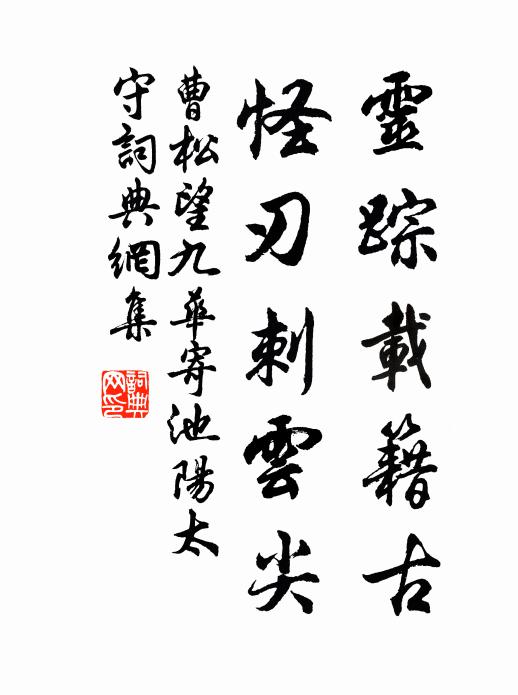 靈踪載籍古
怪刃刺雲尖
曹松望九華寄池陽太
守詞典網集
詞典
网印